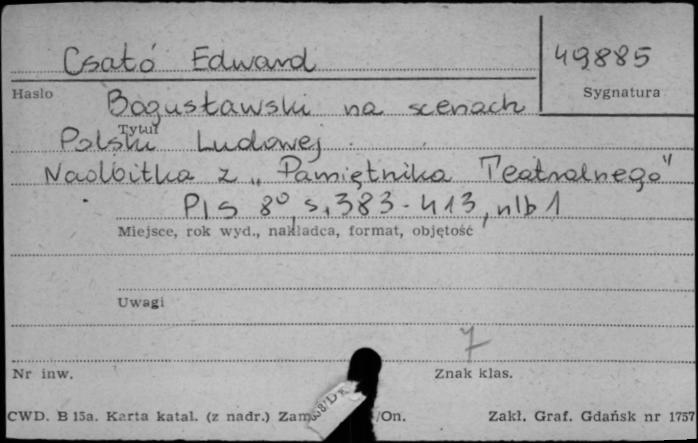 Csató Edward
49885
Hasło
Sygnatura
Bogusławski na scenach
Tytuł
Polski Ludowej
Nadbitka z „Pamiętnika Teatralnego"
PIS 8°, s. 383-413, nlb 1
Miejsce, rok wyd., nakładca, format, objętość
Uwagi
7
Nr inw.
Znak klas.
CWD. B 15a. Karta katal. (z nadr.) /On. Zakł. Graf. Gdańsk nr 1757